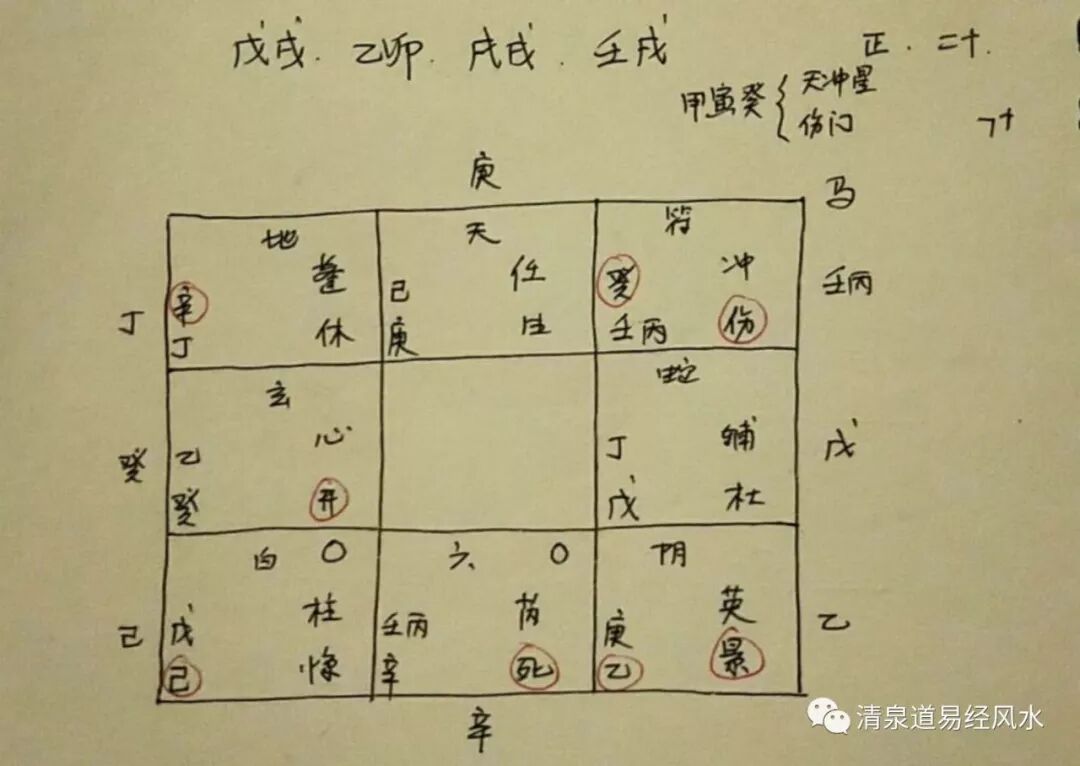 戊戌. 乙卯. 戊戌. 壬戌 正. 二十.
天冲星
甲寅癸
伤门
庚
马
地 天 符
蓬 任 冲
辛 己 癸 壬丙
丁 丁 休 庚 生 壬丙 伤
玄 蛇
癸 乙 心 丁 辅 戊
癸 开 戊 杜
白 O 六 O 阴
戊 柱 壬丙 芮 庚 英
己 己 惊 辛 死 乙 景 乙
辛
清泉道易经风水